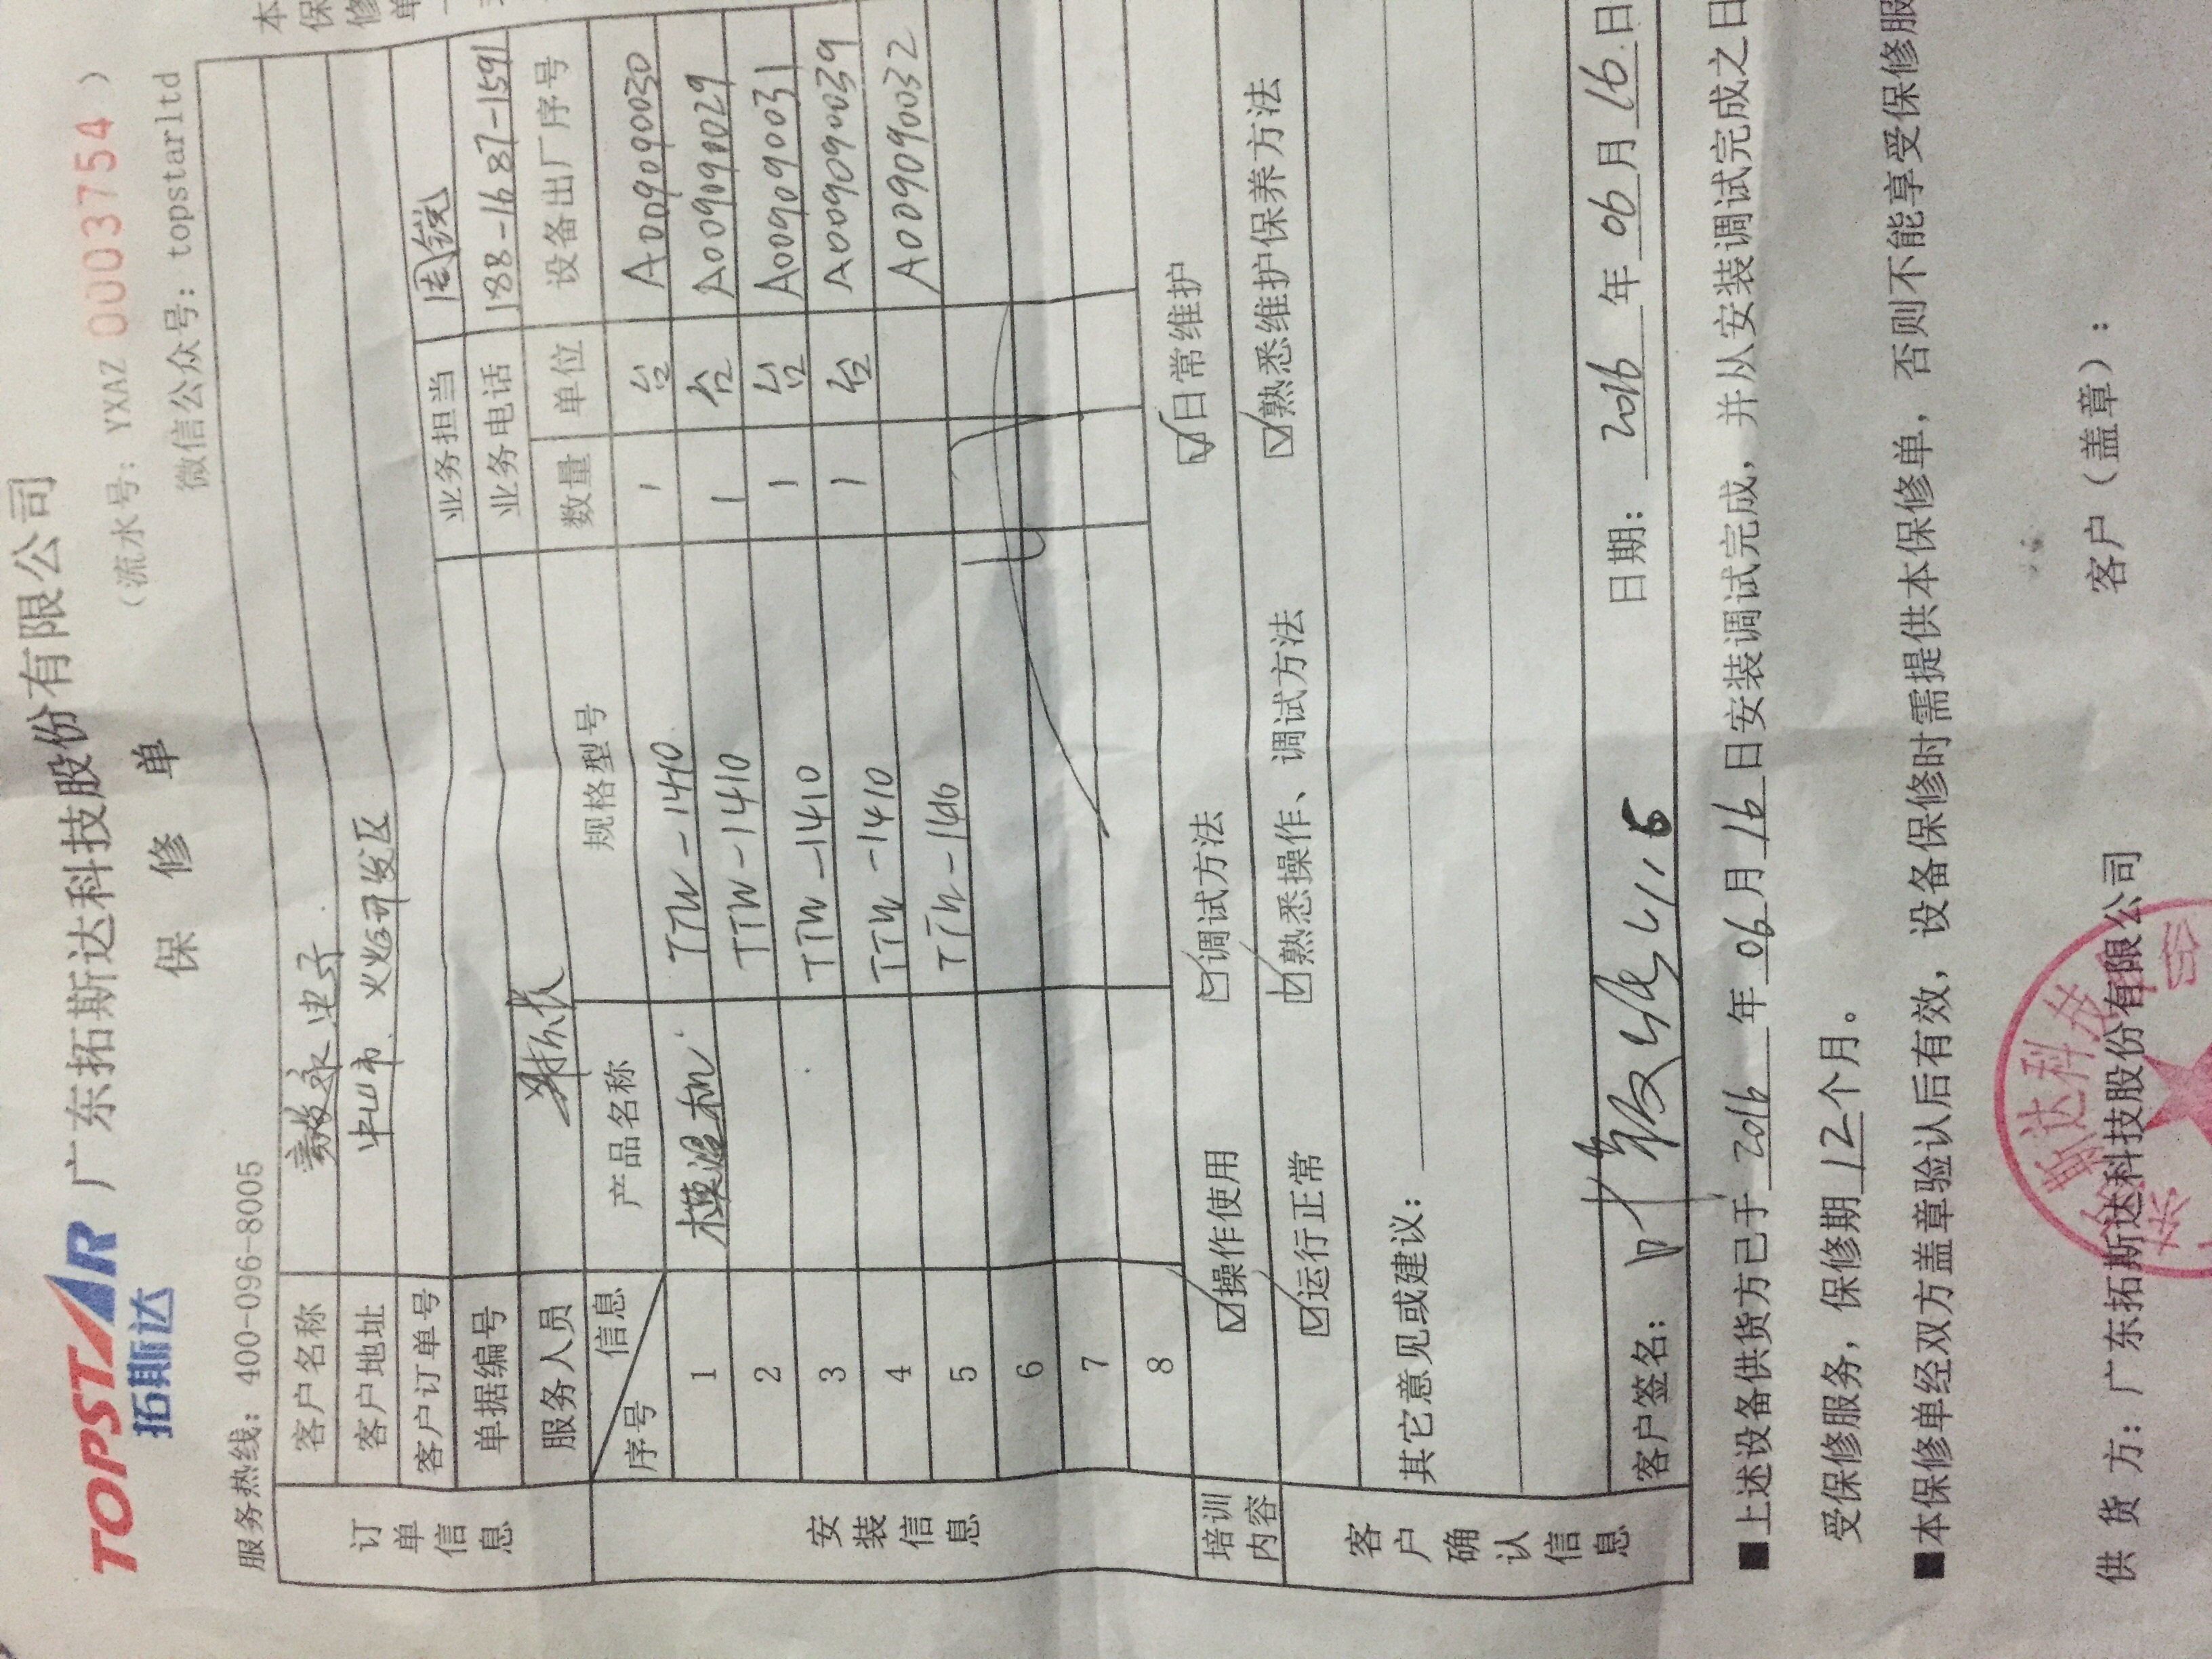 TOPSTAR 拓斯达
广东拓斯达科技股份有限公司
保 修 单
(流水号: YXAZ 0003754 )
服务热线: 400-096-8005
微信公众号: topstarltd
订单信息
客户名称 毅永电子
客户地址 中山市 火炬开发区
客户订单号 业务担当 周锐
单据编号 业务电话 188-1687-1591
服务人员
信息 序号 产品名称 规格型号 数量 单位 设备出厂序号
安装信息
1 模温机 TTW-1410 1 台 A009090030
2 TTW-1410 1 台 A009091029
3 TTW-1410 1 台 A009090031
4 TTW-1410 1 台 A009090039
5 TTW-1410 A009090032
6
7
8
培训内容
☑操作使用 ☑调试方法 ☑日常维护
☑运行正常 ☑熟悉操作、调试方法 ☑熟悉维护保养方法
客户确认信息
其它意见或建议:
客户签名: 日期: 2016 年 06 月 16 日
■上述设备供货方已于 2016 年 06 月 16 日安装调试完成, 并从安装调试完成之日
受保修服务, 保修期 12 个月。
■本保修单经双方盖章验认后有效, 设备保修时需提供本保修单, 否则不能享受保修服
供 货 方: 广东拓斯达科技股份有限公司 客户 (盖章) :
斯达科技
本
保
修
单